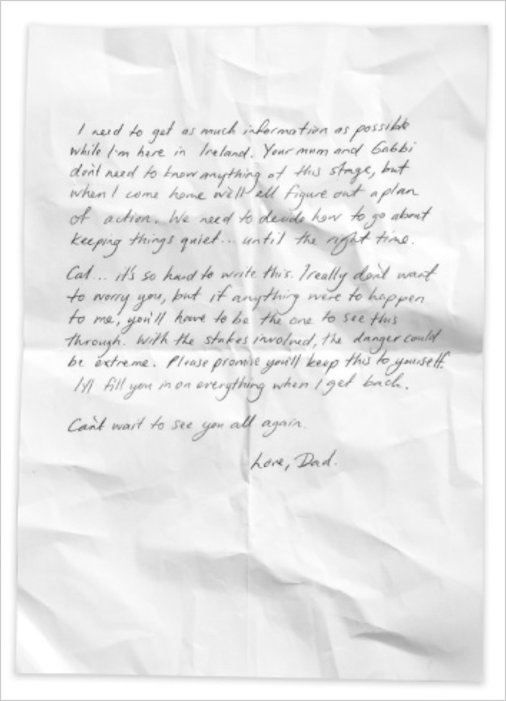 I need to get as much information as possible
while I'm here in Ireland. Your mum and Gabbi
don't need to know anything at this stage, but
when I come home we'll all figure out a plan
of action. We need to decide how to go about
keeping things quiet... until the right time.
Cal... it's so hard to write this. I really don't want
to worry you, but if anything were to happen
to me, you'll have to be the one to see this
through. With the stakes involved, the danger could
be extreme. Please promise you'll keep this to yourself.
I'll fill you in on everything when I get back.
Can't wait to see you all again.
Love, Dad.